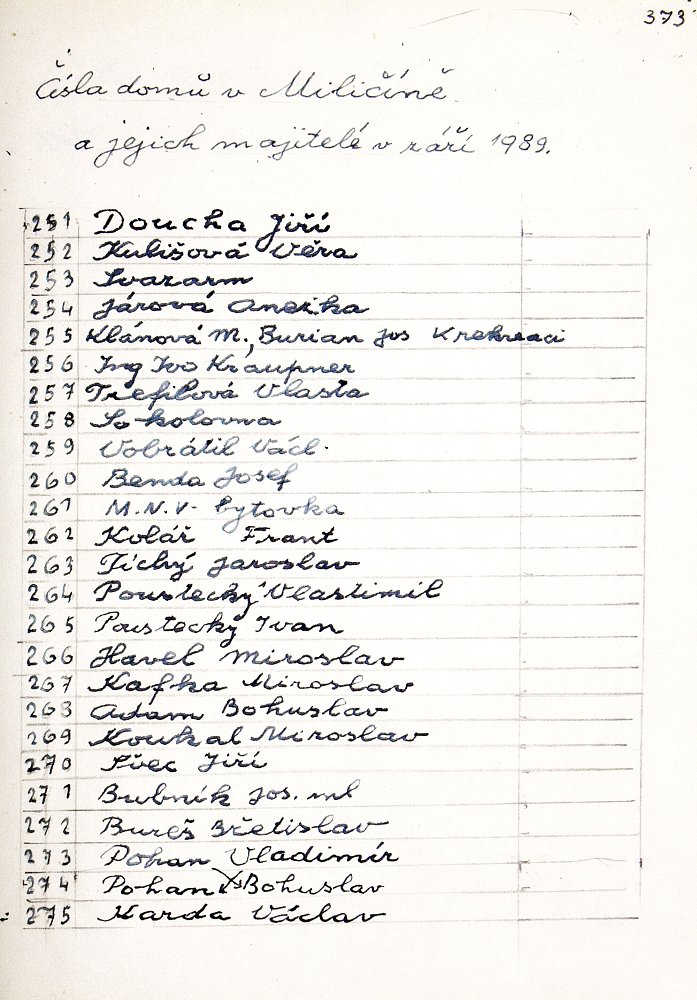 373
Čísla domů v Miličíně
a jejich majitelé v září 1989.
251 Doucha Jiří
252 Kulišová Věra
253 Svazarm
254 Járová Anežka
255 Klánová M., Burian Jos K rekreaci
256 Ing Ivo Kraupner
257 Trefilová Vlasta
258 Sokolovna
259 Vobrátil Václ.
260 Benda Josef
261 M.N.V. bytovka
262 Kolář Frant
263 Tichý Jaroslav
264 Poustecký Vlastimil
265 Poustecký Ivan
266 Havel Miroslav
267 Kafka Miroslav
268 Adam Bohuslav
269 Koukal Miroslav
270 Švec Jiří
271 Bubník Jos. ml
272 Bureš Břetislav
273 Pohan Vladimír
274 Pohan Bohuslav
275 Karda Václav